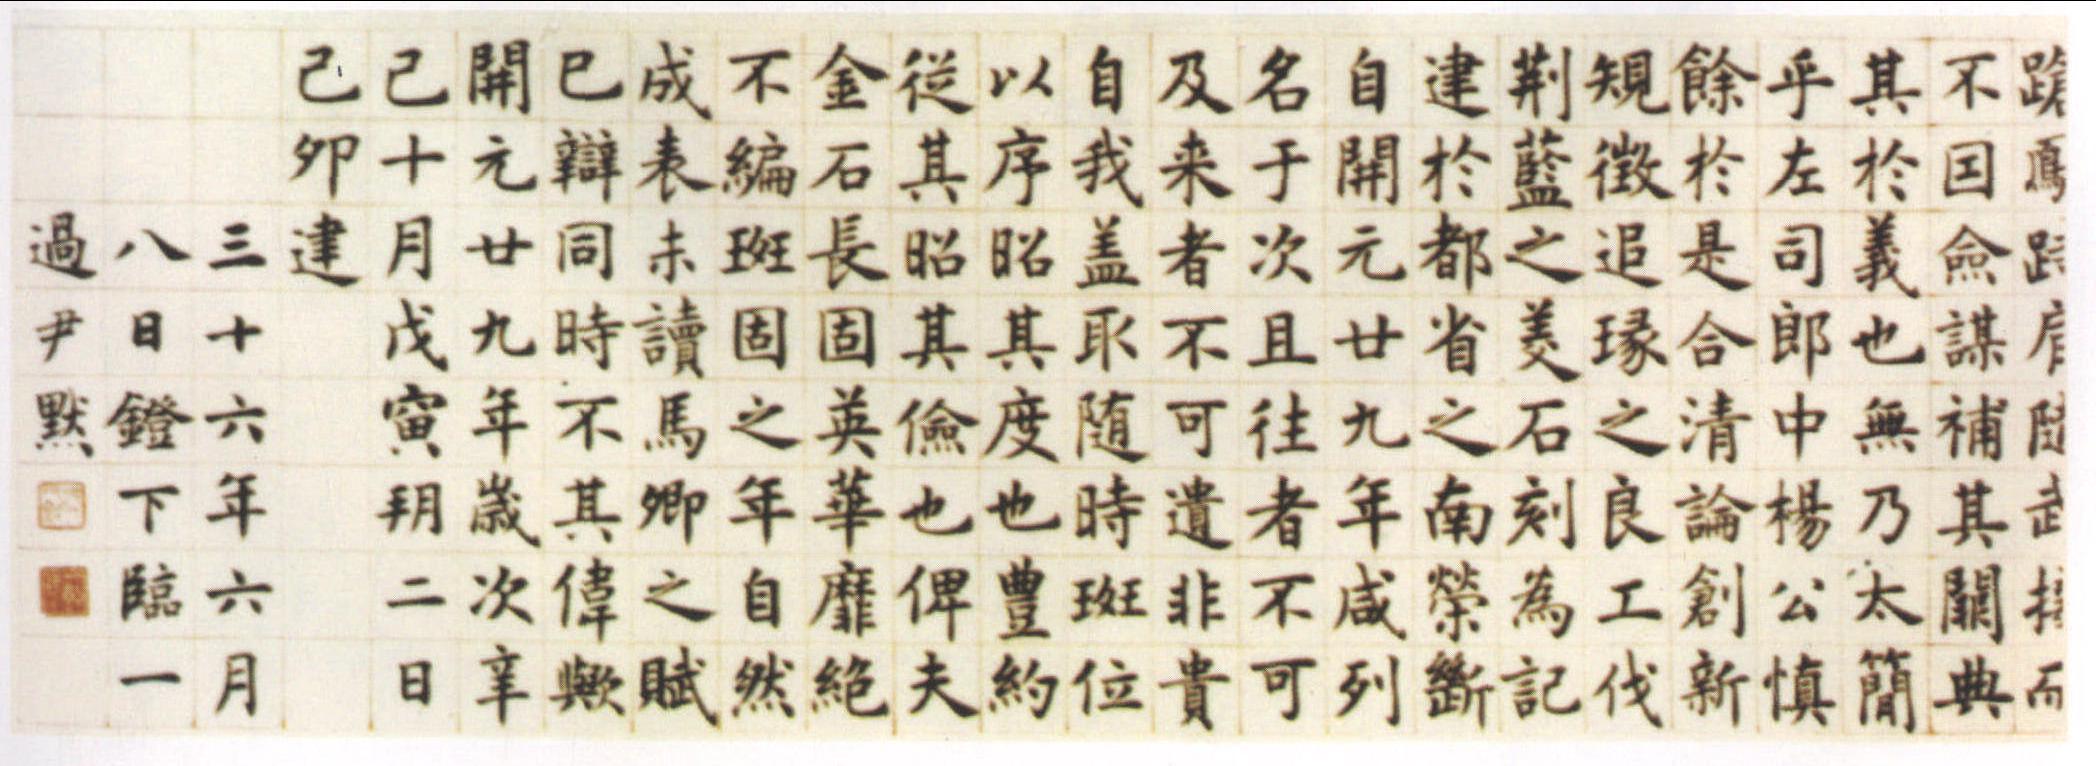 蹌鳳跱肩隨武接而
不因僉謀補其闕典
其於義也無乃太簡
乎左司郎中楊公慎
餘於是合清論創新
規徵追琢之良工伐
荆藍之美石刻為記
建於都省之南榮斷
自開元廿九年咸列
名于次且往者不可
及来者不可遺非貴
自我盖取随時班位
以序昭其度也豊約
從其昭其儉也俾夫
金石長固英華靡絶
不編班固之年自然
成表未讀馬卿之賦
已辯同時不其偉歟
開元廿九年歲次辛
已十月戊寅朔二日
己卯建
三十六年六月
八日鐙下臨一
過尹默